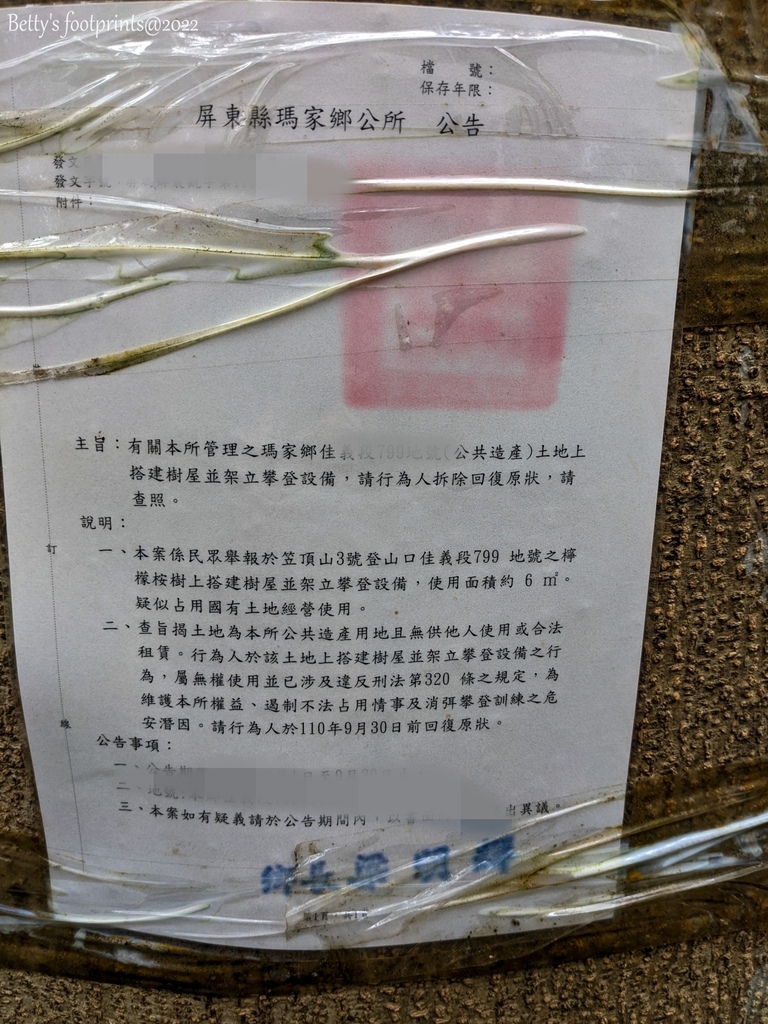 Betty's footprints@2022
檔　　號：
保存年限：
屏東縣瑪家鄉公所　公告
發文
發文字號
附件：
主旨：有關本所管理之瑪家鄉佳義段799地號(公共造產)土地上
搭建樹屋並架立攀登設備，請行為人拆除回復原狀，請
查照。
說明：
一、本案係民眾舉報於笠頂山3號登山口佳義段799 地號之檸
檬桉樹上搭建樹屋並架立攀登設備，使用面積約 6 ㎡。
疑似占用國有土地經營使用。
二、查旨揭土地為本所公共造產用地且無供他人使用或合法
租賃。行為人於該土地上搭建樹屋並架立攀登設備之行
為，屬無權使用並已涉及違反刑法第320 條之規定，為
維護本所權益、遏制不法占用情事及消弭攀登訓練之危
安潛因。請行為人於110年9月30日前回復原狀。
公告事項：
一、公告期
二、地號
三、本案如有疑義請於公告期間內，以書 出異議。
鄉長梁明輝
第1頁，共1頁
訂
線